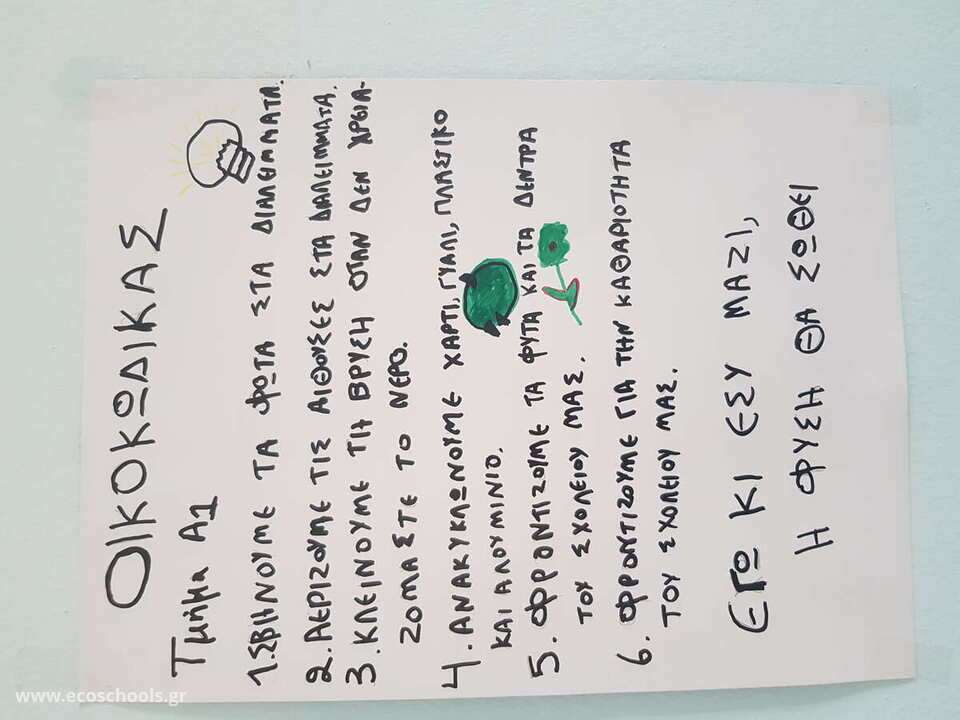 ΟΙΚΟΚΩΔΙΚΑΣ
Τμήμα Α1
1. ΣΒΗΝΟΥΜΕ ΤΑ ΦΩΤΑ ΣΤΑ ΔΙΑΛΕΙΜΜΑΤΑ.
2. ΑΕΡΙΖΟΥΜΕ ΤΙΣ ΑΙΘΟΥΣΕΣ ΣΤΑ ΔΙΑΛΕΙΜΜΑΤΑ.
3. ΚΛΕΙΝΟΥΜΕ ΤΗ ΒΡΥΣΗ ΟΤΑΝ ΔΕΝ ΧΡΕΙΑ-
ΖΟΜΑΣΤΕ ΤΟ ΝΕΡΟ.
4. ΑΝΑΚΥΚΛΩΝΟΥΜΕ ΧΑΡΤΙ, ΓΥΑΛΙ, ΠΛΑΣΤΙΚΟ
ΚΑΙ ΑΛΟΥΜΙΝΙΟ.
5. ΦΡΟΝΤΙΖΟΥΜΕ ΤΑ ΦΥΤΑ ΚΑΙ ΤΑ ΔΕΝΤΡΑ
ΤΟΥ ΣΧΟΛΕΙΟΥ ΜΑΣ.
6. ΦΡΟΝΤΙΖΟΥΜΕ ΓΙΑ ΤΗΝ ΚΑΘΑΡΙΟΤΗΤΑ
ΤΟΥ ΣΧΟΛΕΙΟΥ ΜΑΣ.
ΕΓΩ ΚΙ ΕΣΥ ΜΑΖΙ,
Η ΦΥΣΗ ΘΑ ΣΩΘΕΙ
www.ecoschools.gr